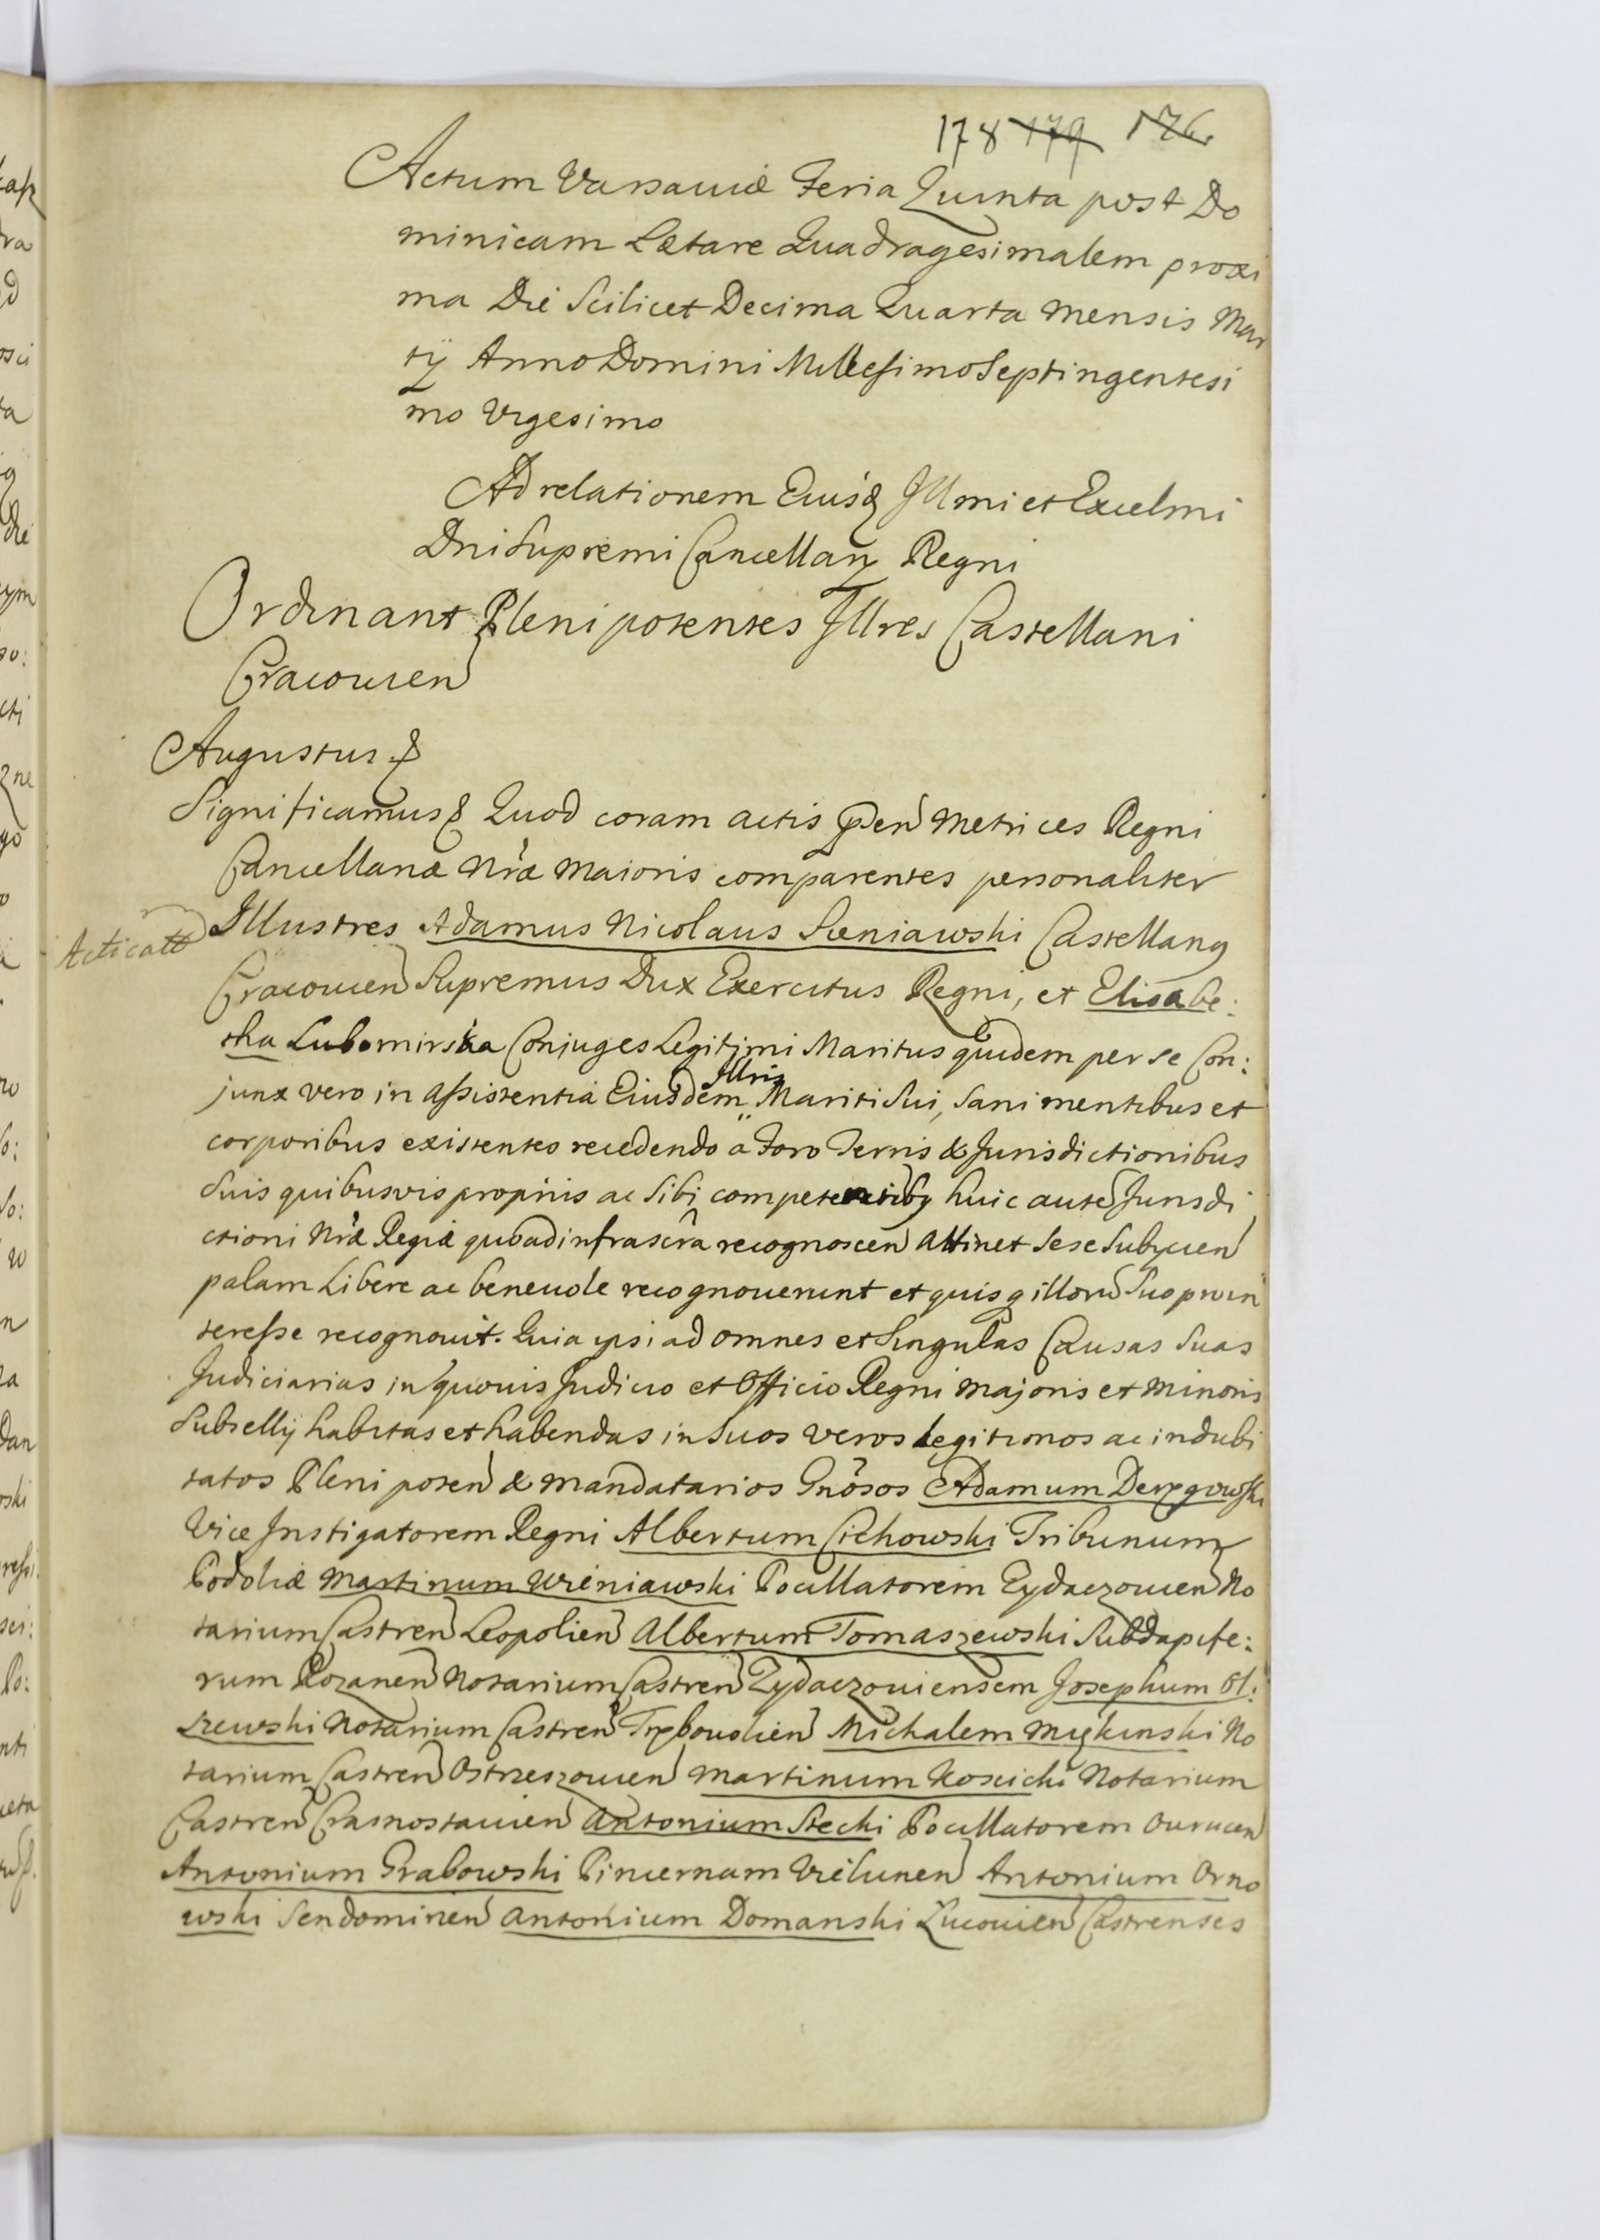 178 179 176.
Actum Varsaviæ Feria Quinta post Do
minicam Lætare Quadragesimalem proxi
ma Die Scilicet Decima Quarta mensis Mar
tij Anno Domini Millesimo Septingentesi
mo Vigesimo
Ad relationem Eiusdẽ Illmi et Excelmi
Dni Supremi Cancellarij Regni
Ordinant Plenipotentes Illres Castellani
Cracovien
Augustus &
Significamus & Quod coram actis p̃sen Metrices Regni
Cancellariæ Nr̃æ Maioris comparentes personaliter
Illustres Adamus Nicolaus Sieniawski Castellanq
Acticatt
Cracovien Supremus Dux Exercitus Regni, et Elisabe:
tha Lubomirska Conjuges Legitimi Maritus quidem per se Con:
junx vero in assistentia Eiusdem Illris Mariti Sui, Sani mentibus et
corporibus existentes recedendo a Foro Terris & Jurisdictionibus
Suis quibusvis proprijs ac Sibi competentibq huic autẽ Jurisdi
ctioni Nr̃æ Regiæ quoad infrascr̃a recognoscen Attinet Sese Subijcien
palam Libere ac benevole recognoverunt et quisq illorũ Suo pro in
teresse recognovit. Quia ipsi ad omnes et Singulas Causas Suas
Judiciarias in quovis Judicio et Officio Regni Majoris et Minoris
Subsellij habitas et habendas in Suos veros legitimos ac indubi
tatos Plenipoten & mandatarios Gnõsos Adamum
Vice Instigatorem Regni Albertum Cichowski Tribunum
Podoliæ Martinum Wieniawski Pocillatorem Zydaczovien No
tarium Castren Leopolien Albertum Tomaszewski Subdapife:
rum Rozanen Notarium Castren Zydaczoviensem Josephum Ol:
szewski Notarium Castren Trębovolien Michalem No
tarium Castren Ostrzeszovien Martinum Koscicki Notarium
Castren Crasnostavien Antonium Stecki Pocillatorem Ovrucen
Antonium Grabowski Pincernam Vielunen Antonium Orno
wski Sendomirien Antonium Domanski Lucovien Castrenses